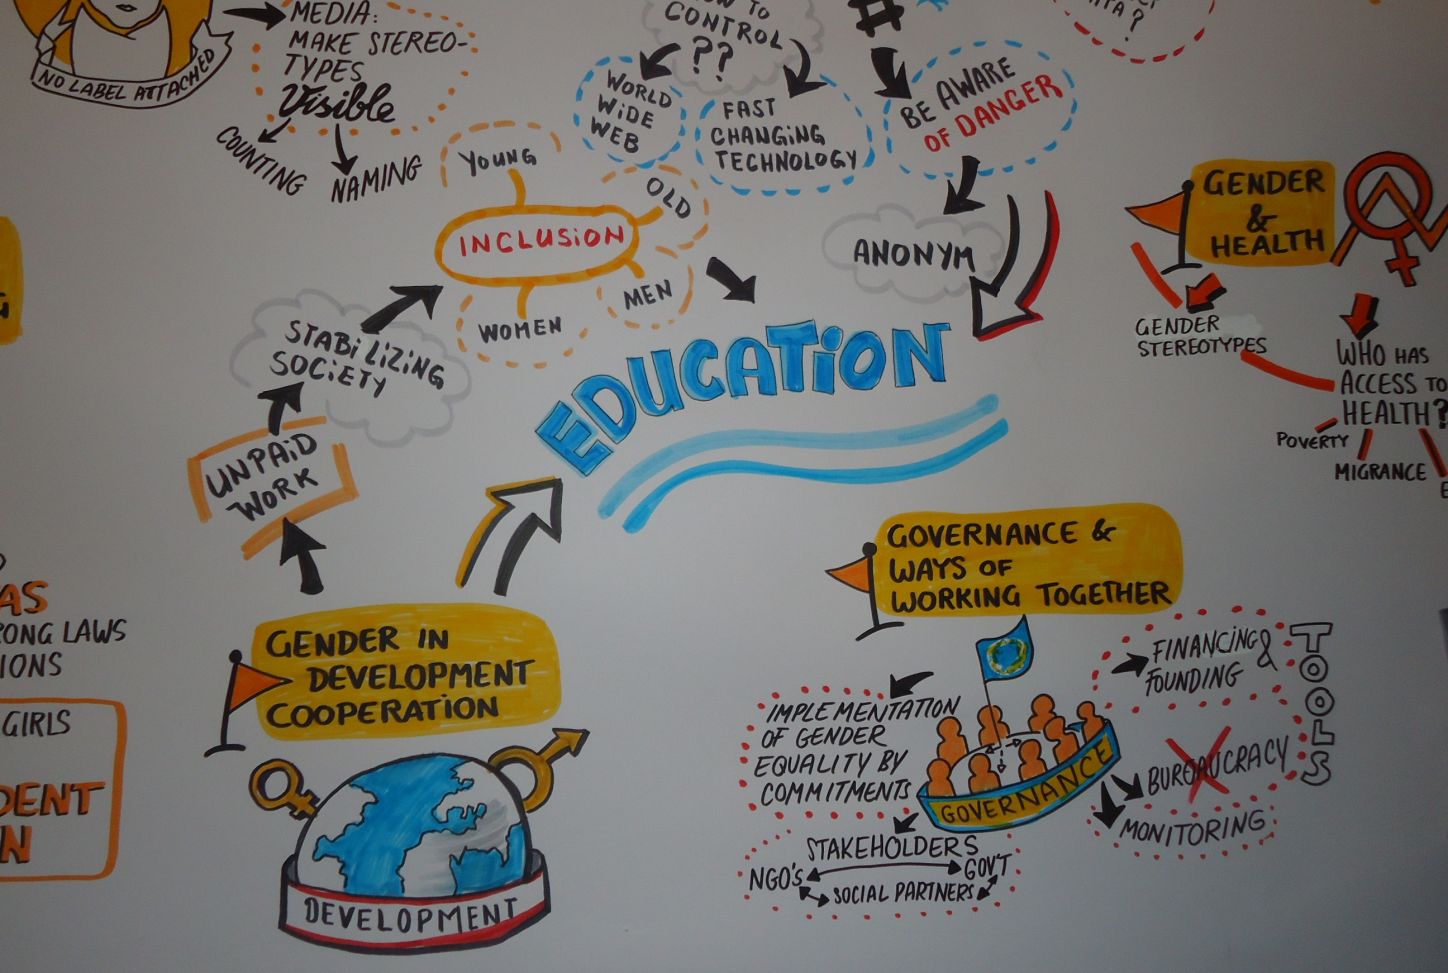 NO LABEL ATTACHED
MEDIA:
MAKE STEREO-
TYPES
Visible
COUNTING
NAMING
TO
CONTROL
??
WORLD
WIDE
WEB
FAST
CHANGING
TECHNOLOGY
#
BE AWARE
OF DANGER
ANONYM
YOUNG
OLD
INCLUSION
WOMEN
MEN
STABILIZING
SOCIETY
UNPAID
WORK
EDUCATION
GENDER
&
HEALTH
GENDER
STEREOTYPES
WHO HAS
ACCESS TO
HEALTH?
POVERTY
MIGRANCE
GENDER IN
DEVELOPMENT
COOPERATION
DEVELOPMENT
GOVERNANCE &
WAYS OF
WORKING TOGETHER
IMPLEMENTATION
OF GENDER
EQUALITY BY
COMMITMENTS
GOVERNANCE
FINANCING &
FOUNDING
TOOLS
BUREAUCRACY
MONITORING
STAKEHOLDERS
NGO'S
GOV'T
SOCIAL PARTNERS
LAWS
GIRLS